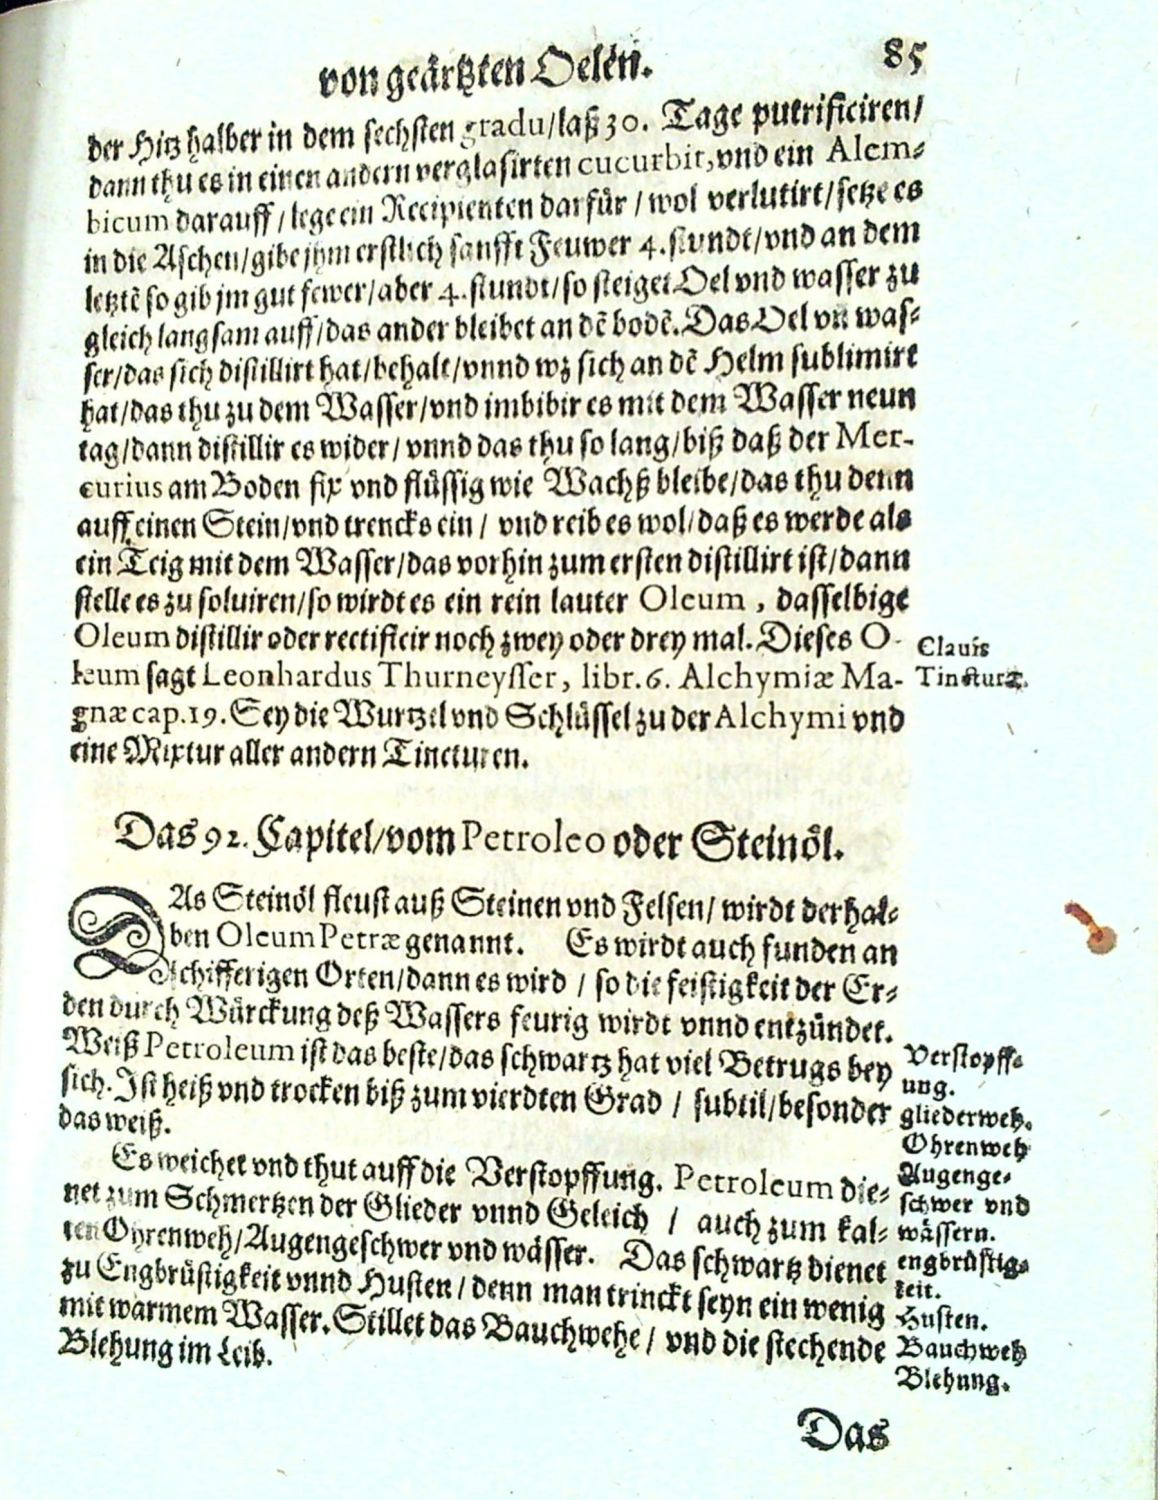 von geärtzten Oelen. 85
der Hitz halber in dem sechsten gradu/laß 30. Tage putrificiren/
dann thu es in einen andern verglasirten cucurbit, vnd ein Alem-
bicum darauff/lege ein Recipienten darfür/wol verlutirt/setze es
in die Aschen/gibe jhm erstlich sanfft Feuwer 4. stundt/vnd an dem
letztẽ so gib jm gut fewer/aber 4. stundt/so steiget Oel vnd wasser zu
gleich langsam auff/das ander bleibet an dẽ bodẽ. Das Oel vñ was-
ser/das sich distillirt hat/behalt/vnnd wz sich an dẽ Helm sublimirt
hat/das thu zu dem Wasser/vnd imbibir es mit dem Wasser neun
tag/dann distillir es wider/vnnd das thu so lang/biß daß der Mer-
curius am Boden fix vnd flüssig wie Wachß bleibe/das thu denn
auff einen Stein/vnd trencks ein/ vnd reib es wol/daß es werde als
ein Teig mit dem Wasser/das vorhin zum ersten distillirt ist/dann
stelle es zu soluiren/so wirdt es ein rein lauter Oleum, dasselbige
Oleum distillir oder rectificir noch zwey oder drey mal. Dieses O-
leum sagt Leonhardus Thurneysser, libr. 6. Alchymiæ Ma-
gnæ cap. 19. Sey die Wurtzel vnd Schlüssel zu der Alchymi vnd
eine Mixtur aller andern Tincturen.
Clauis
Tincturæ.
Das 92. Capitel/vom Petroleo oder Steinöl.
DAs Steinöl fleust auß Steinen vnd Felsen/ wirdt derhal-
ben Oleum Petræ genannt. Es wirdt auch funden an
schifferigen Orten/dann es wird/ so die feistigkeit der Er-
den durch Würckung deß Wassers feurig wirdt vnnd entzündet.
Weiß Petroleum ist das beste/das schwartz hat viel Betrugs bey
sich. Ist heiß vnd trocken biß zum vierdten Grad/ subtil/besonder
das weiß.
Es weichet vnd thut auff die Verstopffung. Petroleum die-
net zum Schmertzen der Glieder vnnd Geleich/ auch zum kal-
ten Ohrenweh/Augengeschwer vnd wässer. Das schwartz dienet
zu Engbrüstigkeit vnnd Husten/denn man trinckt seyn ein wenig
mit warmem Wasser. Stillet das Bauchwehe/ vnd die stechende
Blehung im Leib.
Verstopff-
ung.
gliederweh.
Ohrenweh
Augenge-
schwer vnd
wässern.
engbrüstig-
keit.
Husten.
Bauchweh
Blehung.
Das